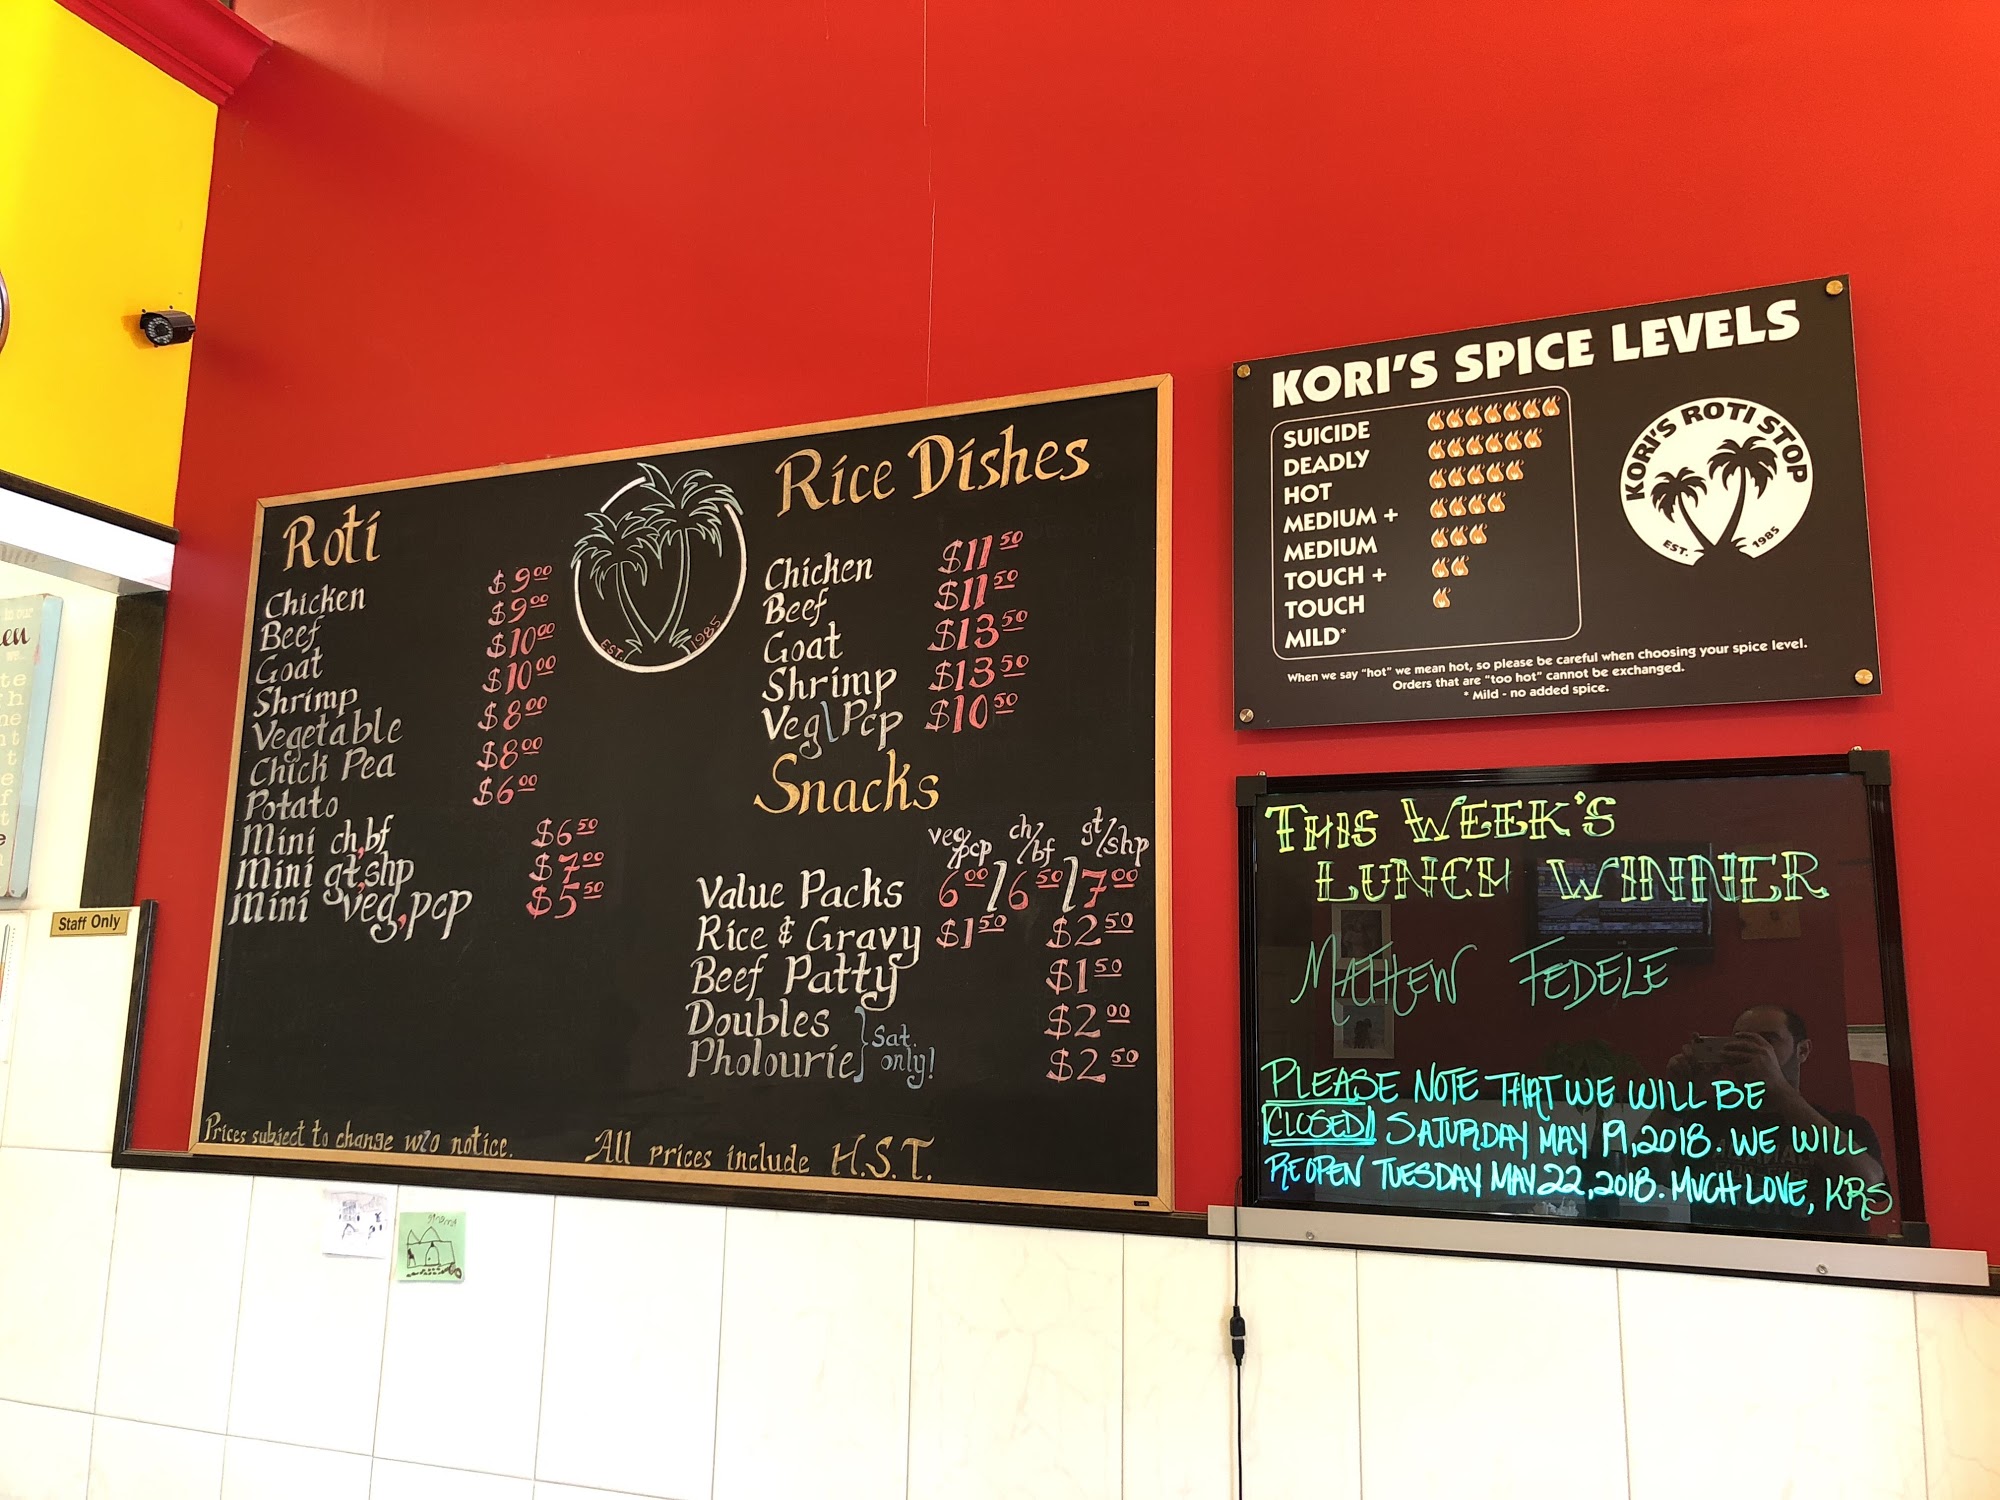 Roti
Chicken $9.00
Beef $9.00
Goat $10.00
Shrimp $10.00
Vegetable $8.00
Chick Pea $8.00
Potato $6.00
Mini ch,bf $6.50
Mini gt,shp $7.00
Mini veg,pcp $5.50
EST. 1985
Rice Dishes
Chicken $11.50
Beef $11.50
Goat $13.50
Shrimp $13.50
Veg\Pcp $10.50
Snacks
veg/pcp ch/bf gt/shp
Value Packs 6.00/6.50/7.00
Rice & Gravy $1.50 $2.50
Beef Patty $1.50
Doubles $2.00
Pholourie $2.50
Sat.
only!
Prices subject to change w/o notice.
All prices include H.S.T.
KORI'S SPICE LEVELS
SUICIDE
DEADLY
HOT
MEDIUM +
MEDIUM
TOUCH +
TOUCH
MILD*
KORI'S ROTI STOP
EST. 1985
When we say "hot" we mean hot, so please be careful when choosing your spice level.
Orders that are "too hot" cannot be exchanged.
* Mild - no added spice.
THIS WEEK'S
LUNCH WINNER
MATHEW FEDELE
PLEASE NOTE THAT WE WILL BE
CLOSED! SATURDAY MAY 19, 2018. WE WILL
REOPEN TUESDAY MAY 22, 2018. MUCH LOVE, KRS
Staff Only